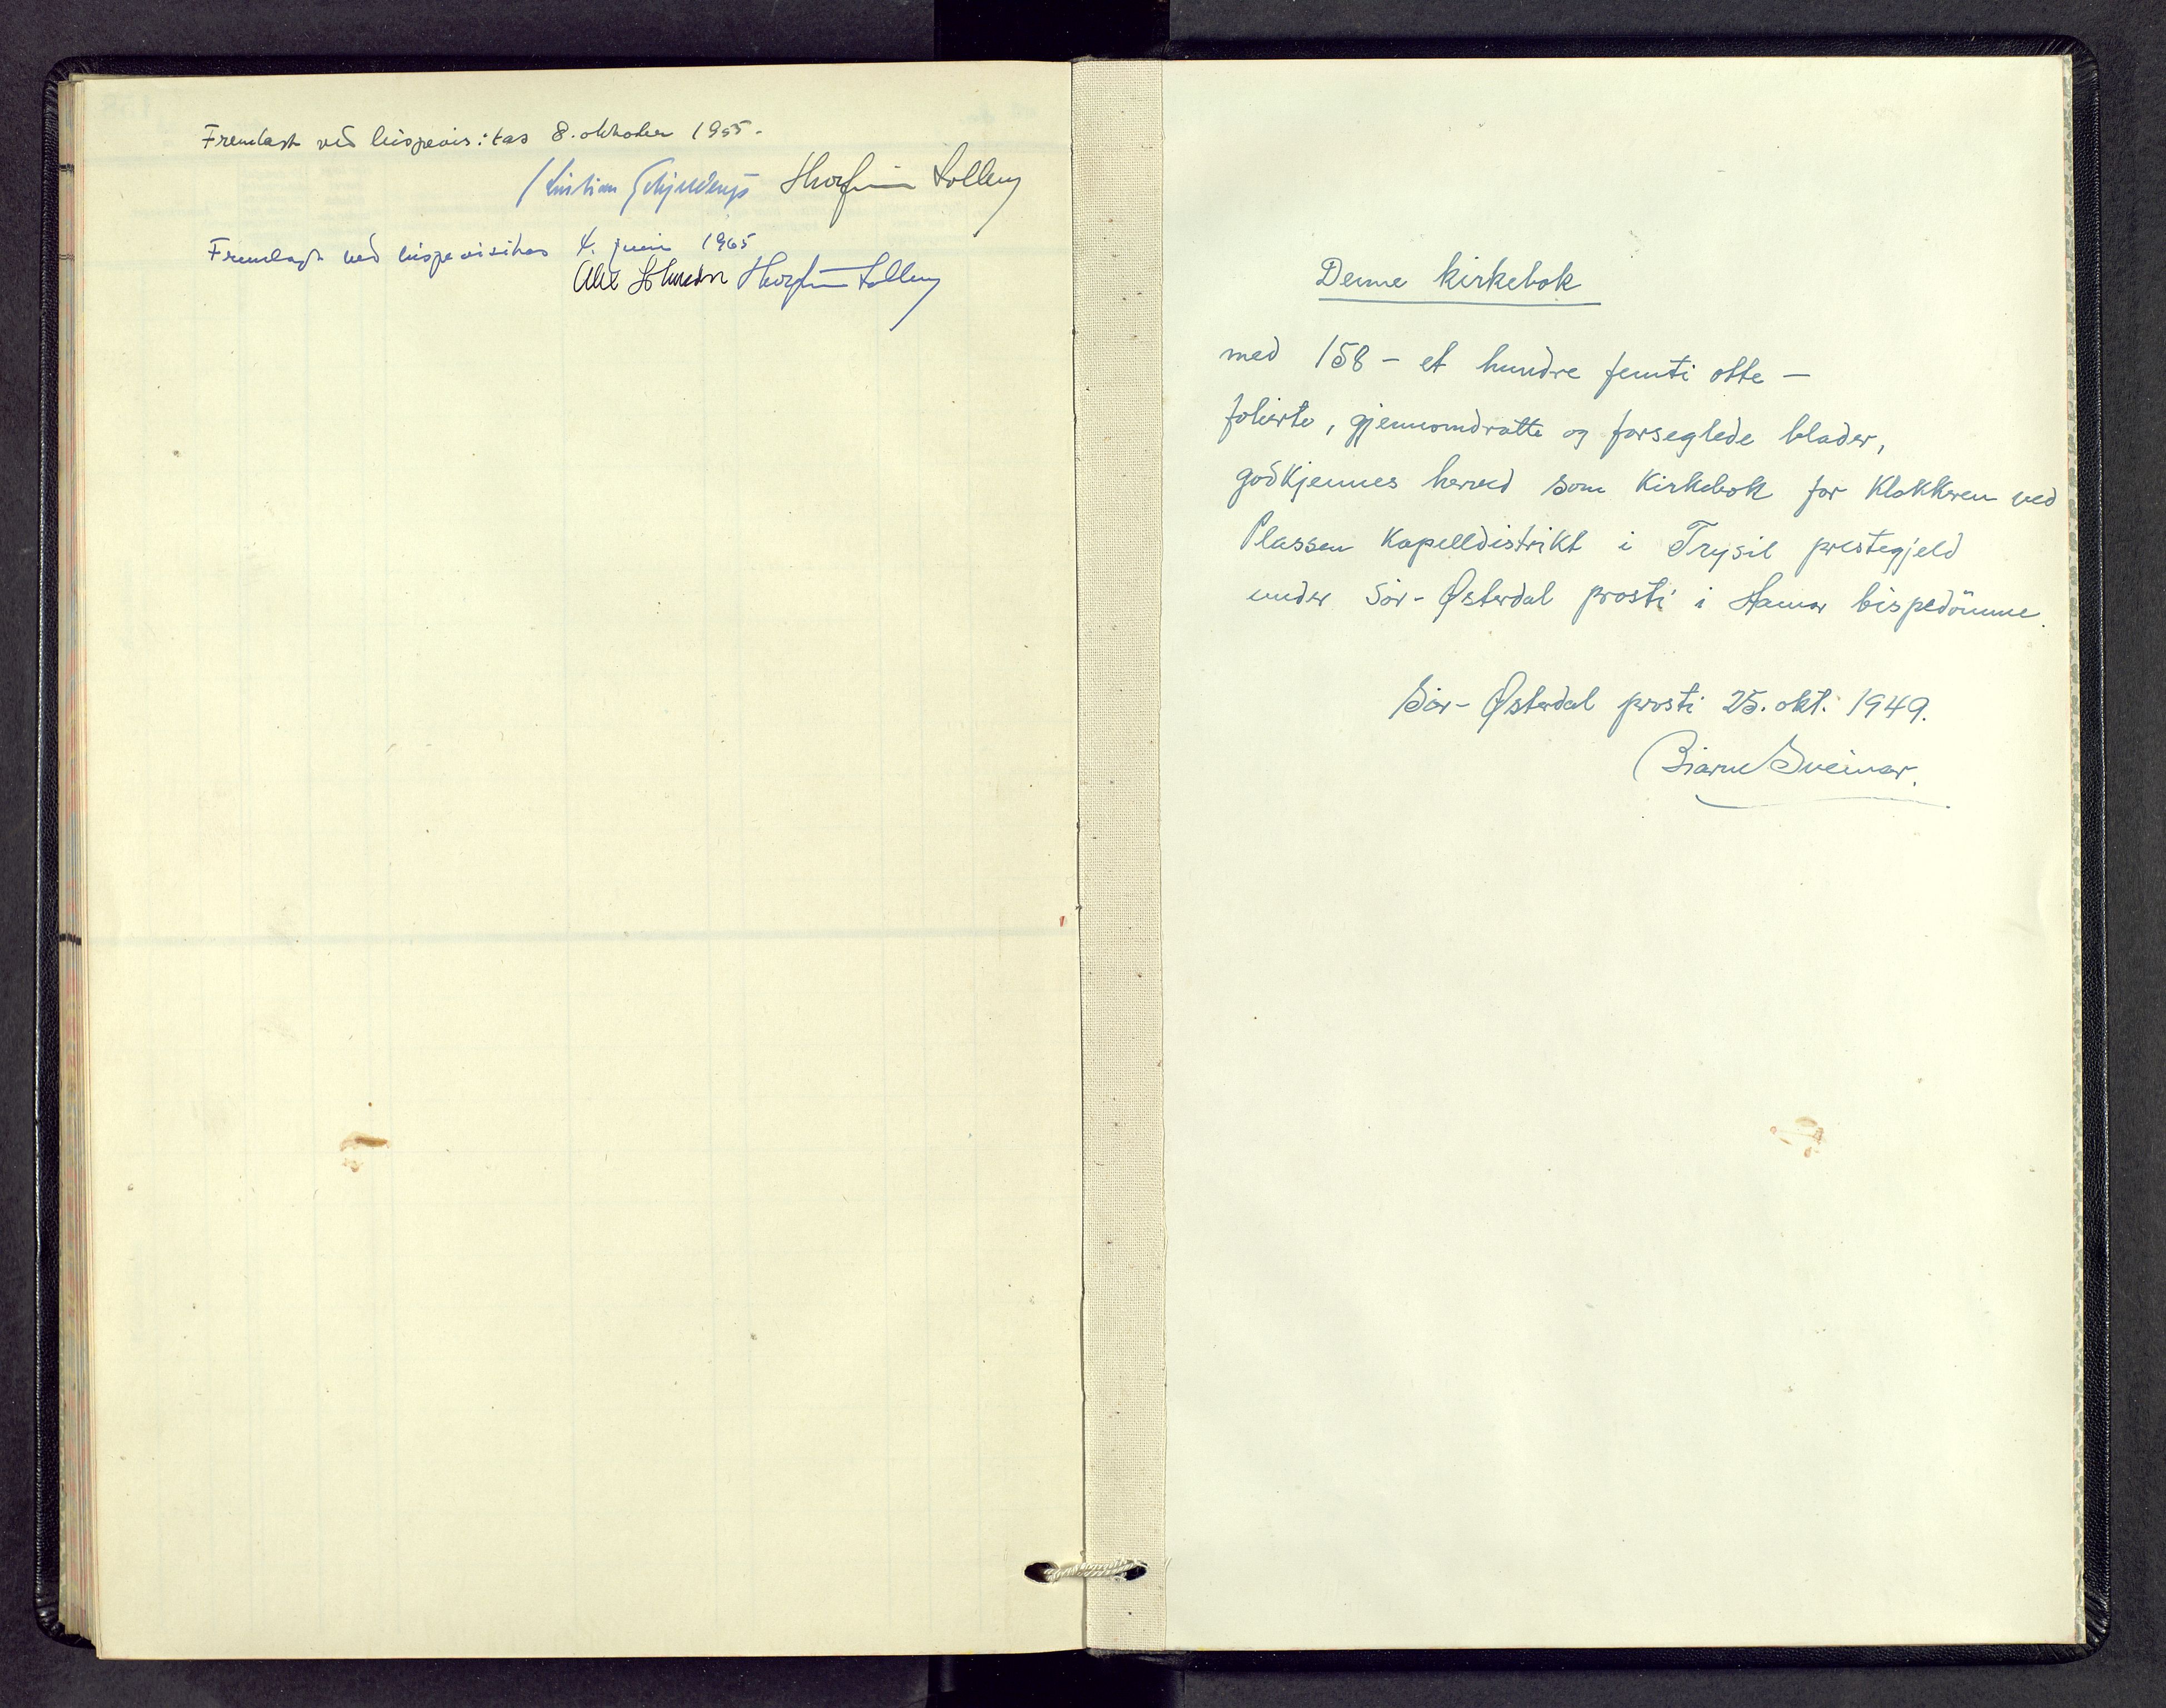 Fremlagt ved bispevisitas 8. oktober 1955.
Kristian Schjelderup Thorfinn Solberg
Fremlagt ved bispevisitas 4. juni 1965
Alex Johnson Thorfinn Solberg
Denne kirkebok
med 158 - et hundre femti otte -
folierte, gjennomdratte og forseglede blader,
godkjennes herved som kirkebok for klokkeren ved
Plassen kapelldistrikt i Trysil prestegjeld
under Sör-Østerdal prosti i Hamar bispedömme.
Sör-Østerdal prosti 25. okt. 1949.
Bjarne Sveinar.